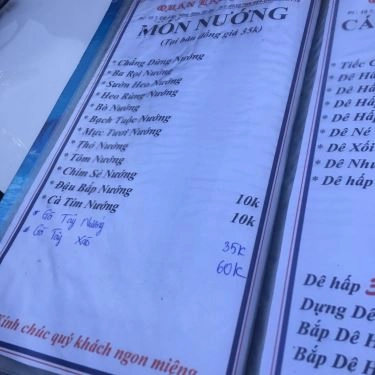 MÓN NƯỚNG
(Tại bàn đồng giá 35k)
* Chẳng Dừng Nướng
* Ba Rọi Nướng
* Sườn Heo Nướng
* Heo Rừng Nướng
* Bò Nướng
* Bạch Tuộc Nướng
* Mực Tươi Nướng
* Thỏ Nướng
* Tôm Nướng
* Chim Sẻ Nướng
* Đậu Bắp Nướng 10k
* Cà Tím Nướng 10k
* Gõ Tây Nướng 35k
* Gõ Tây Xáo 60k
kính chúc quý khách ngon miệng
CÁ
* Tiếc
* Dê Hấ
* Dê Hấ
* Dê Hấ
* Dê Né
* Dê Xối
* Dê Nhu
* Dê hấp
Dê hấp 3
Dựng Dê
Bắp Dê H
Bắp Dê H